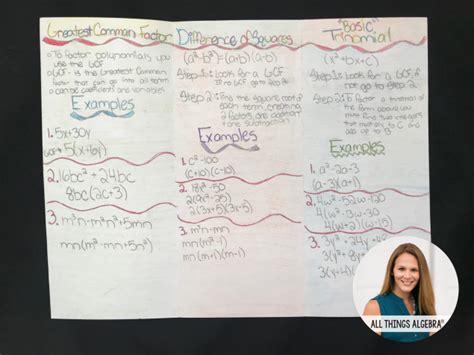 Greatest Common Factor
To factor polynomials you
use the GCF
GCF is the Greatest Common
Factor that can go into all
can be coefficients and variables
Examples
1. 5x+30y
5(x+6y)
2. 16bc²+24bc
8bc(2c+3)
3. m³n-m²n²+5mn
mn(m²-mn+5n²)
Difference of Squares
(a²-b²)=(a+b)(a-b)
Step 1: Look for a GCF, if
no GCF go to step 2.
Step 2: Find the square root of
each term, creating
2 factors, one addition
one subtraction
Examples
1. c²-100
(c+10)(c-10)
2. 18x²-50
2(9x²-25)
2(3x+5)(3x-5)
3. m³n-mn
mn(m²-1)
mn(m+1)(m-1)
"Basic"
Trinomial
(x²+bx+c)
Step 1: Look for a GCF,
if not, go to
Step 2.
Step 2: To factor a trinomial of
the form above
must find two integers
that multiply to C and
add up to B
Examples
(a-3)(a+1)
2. 4w²-52w-120
3. 3y²+24y+
ALL THINGS ALGEBRA®